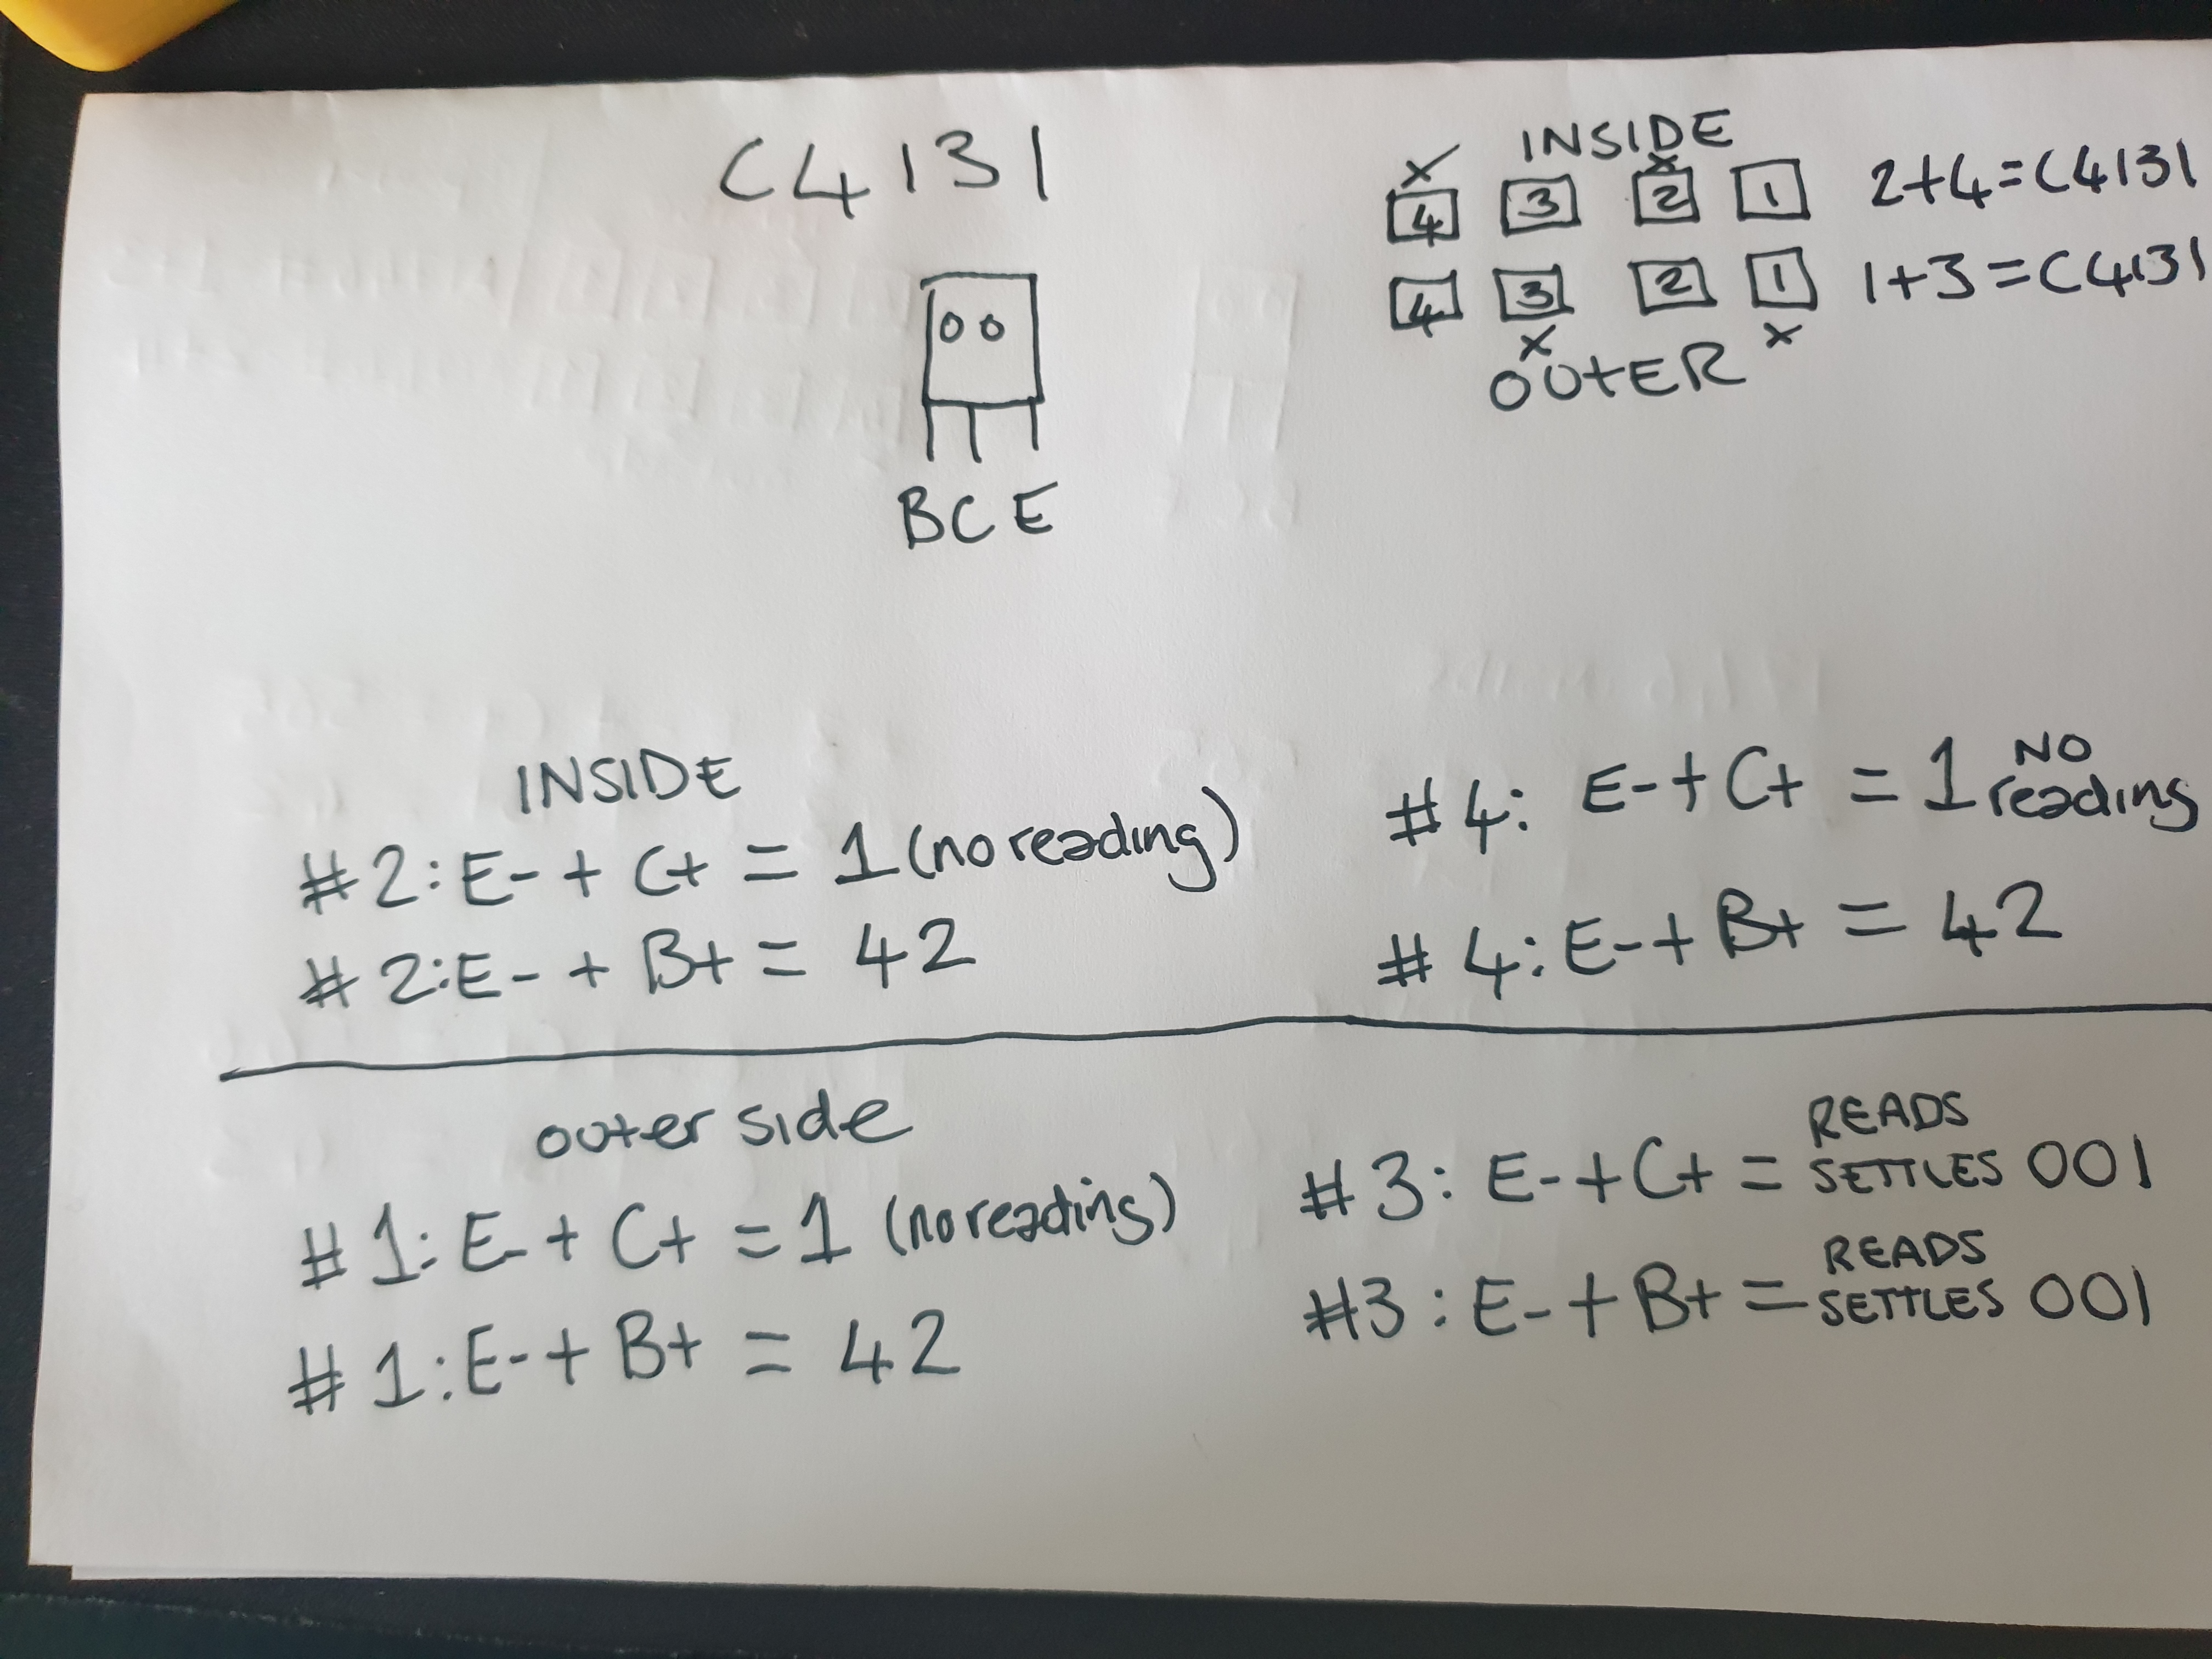 C4131
BCE
INSIDE
x x
4 3 2 1 2+4=C4131
4 3 2 1 1+3=C4131
x x
OUTER
INSIDE
#2: E- + C+ = 1 (no reading)
#2: E- + B+ = 42
#4: E- + C+ = 1 NO reading
#4: E- + B+ = 42
outer side
#1: E- + C+ = 1 (no reading)
#1: E- + B+ = 42
#3: E- + C+ = READS SETTLES 001
#3: E- + B+ = READS SETTLES 001